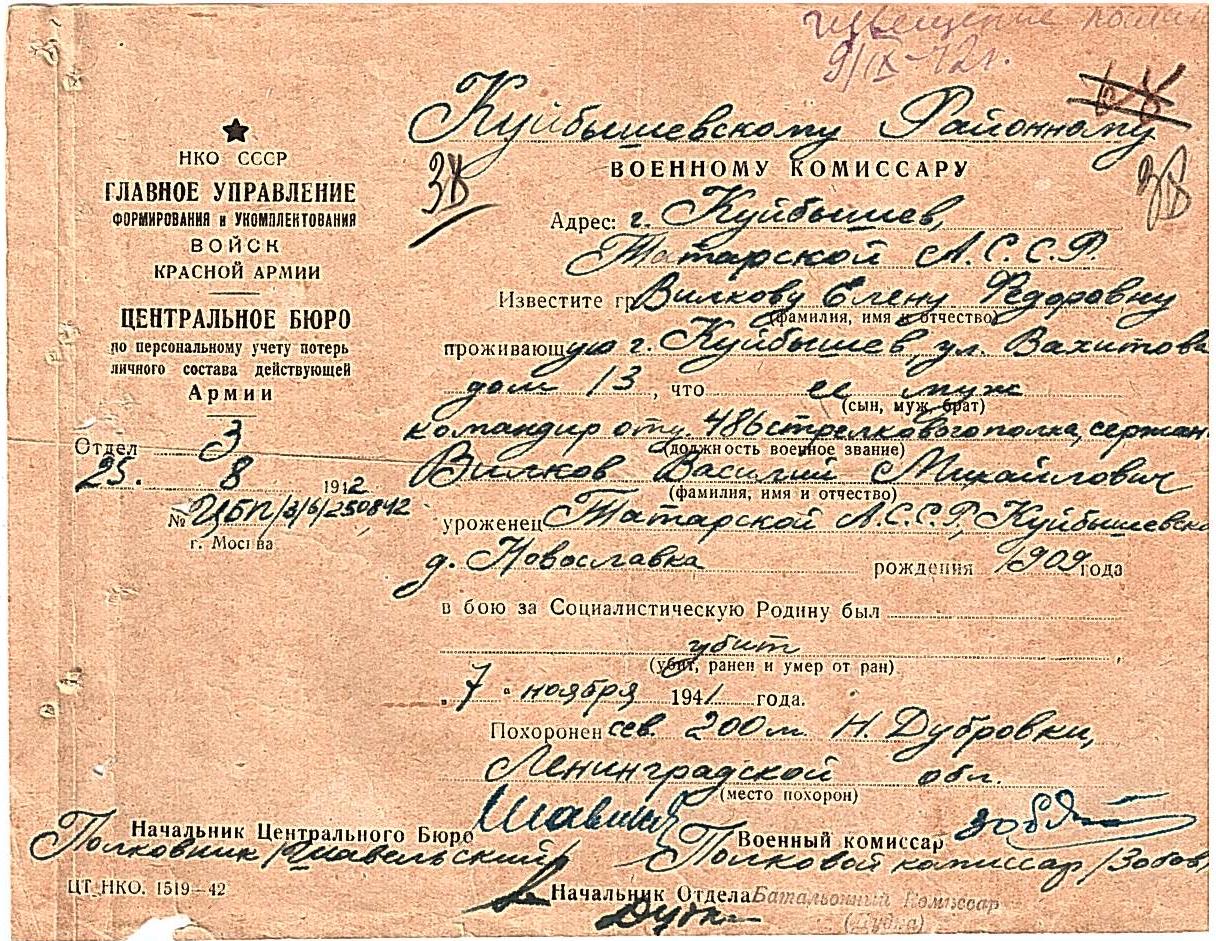 извещение
9/IX-42г.
Куйбышевскому Районному
ВОЕННОМУ КОМИССАРУ
Адрес: г. Куйбышев,
Татарской А.С.С.Р.
Известите гр. Вилкову Елену Федоровну
(фамилия, имя и отчество)
проживающую г. Куйбышев, ул. Вахитова
дом 13, что ее муж
(сын, муж, брат)
командир отд. 486 стрелкового полка, сержан
(должность военное звание)
Вилков Василий Михайлович
(фамилия, имя и отчество)
уроженец Татарской А.С.С.Р, Куйбышевско
д. Новославка рождения 1909 года
в бою за Социалистическую Родину был
убит
(убит, ранен и умер от ран)
„ 7 " ноября 1941 года.
Похоронен сев. 200 м. Н. Дубровки,
Ленинградской обл.
(место похорон)
НКО СССР
ГЛАВНОЕ УПРАВЛЕНИЕ
ФОРМИРОВАНИЯ и УКОМПЛЕКТОВАНИЯ
ВОЙСК
КРАСНОЙ АРМИИ
ЦЕНТРАЛЬНОЕ БЮРО
по персональному учету потерь
личного состава действующей
Армии
Отдел 3
25. 8 1942
№ ЦБП/3/6/250842
г. Москва
Начальник Центрального Бюро Военный комиссар
Полковник /Шавельский/ Полковой комиссар /Зобов
ЦТ НКО. 1519—42
Начальник Отдела Батальонный Комиссар
(Дудка)